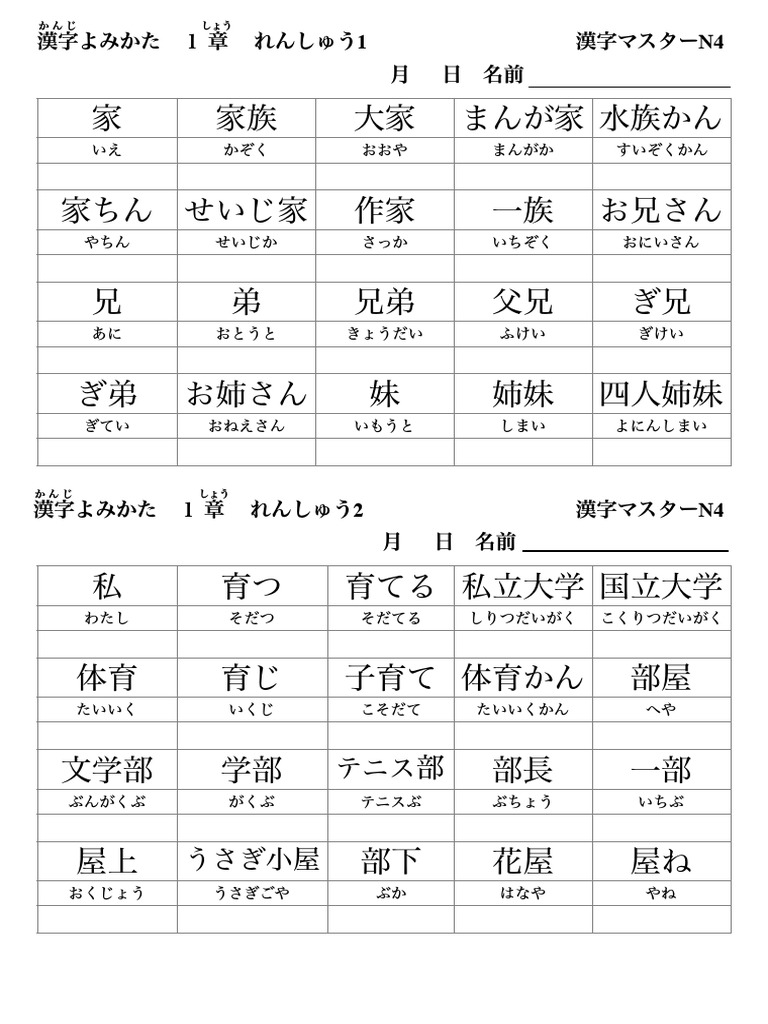 かんじ しょう
漢字よみかた 1 章 れんしゅう1 漢字マスターN4
月 日 名前
家 家族 大家 まんが家 水族かん
いえ かぞく おおや まんがか すいぞくかん
家ちん せいじ家 作家 一族 お兄さん
やちん せいじか さっか いちぞく おにいさん
兄 弟 兄弟 父兄 ぎ兄
あに おとうと きょうだい ふけい ぎけい
ぎ弟 お姉さん 妹 姉妹 四人姉妹
ぎてい おねえさん いもうと しまい よにんしまい
かんじ しょう
漢字よみかた 1 章 れんしゅう2 漢字マスターN4
月 日 名前
私 育つ 育てる 私立大学 国立大学
わたし そだつ そだてる しりつだいがく こくりつだいがく
体育 育じ 子育て 体育かん 部屋
たいいく いくじ こそだて たいいくかん へや
文学部 学部 テニス部 部長 一部
ぶんがくぶ がくぶ テニスぶ ぶちょう いちぶ
屋上 うさぎ小屋 部下 花屋 屋ね
おくじょう うさぎごや ぶか はなや やね